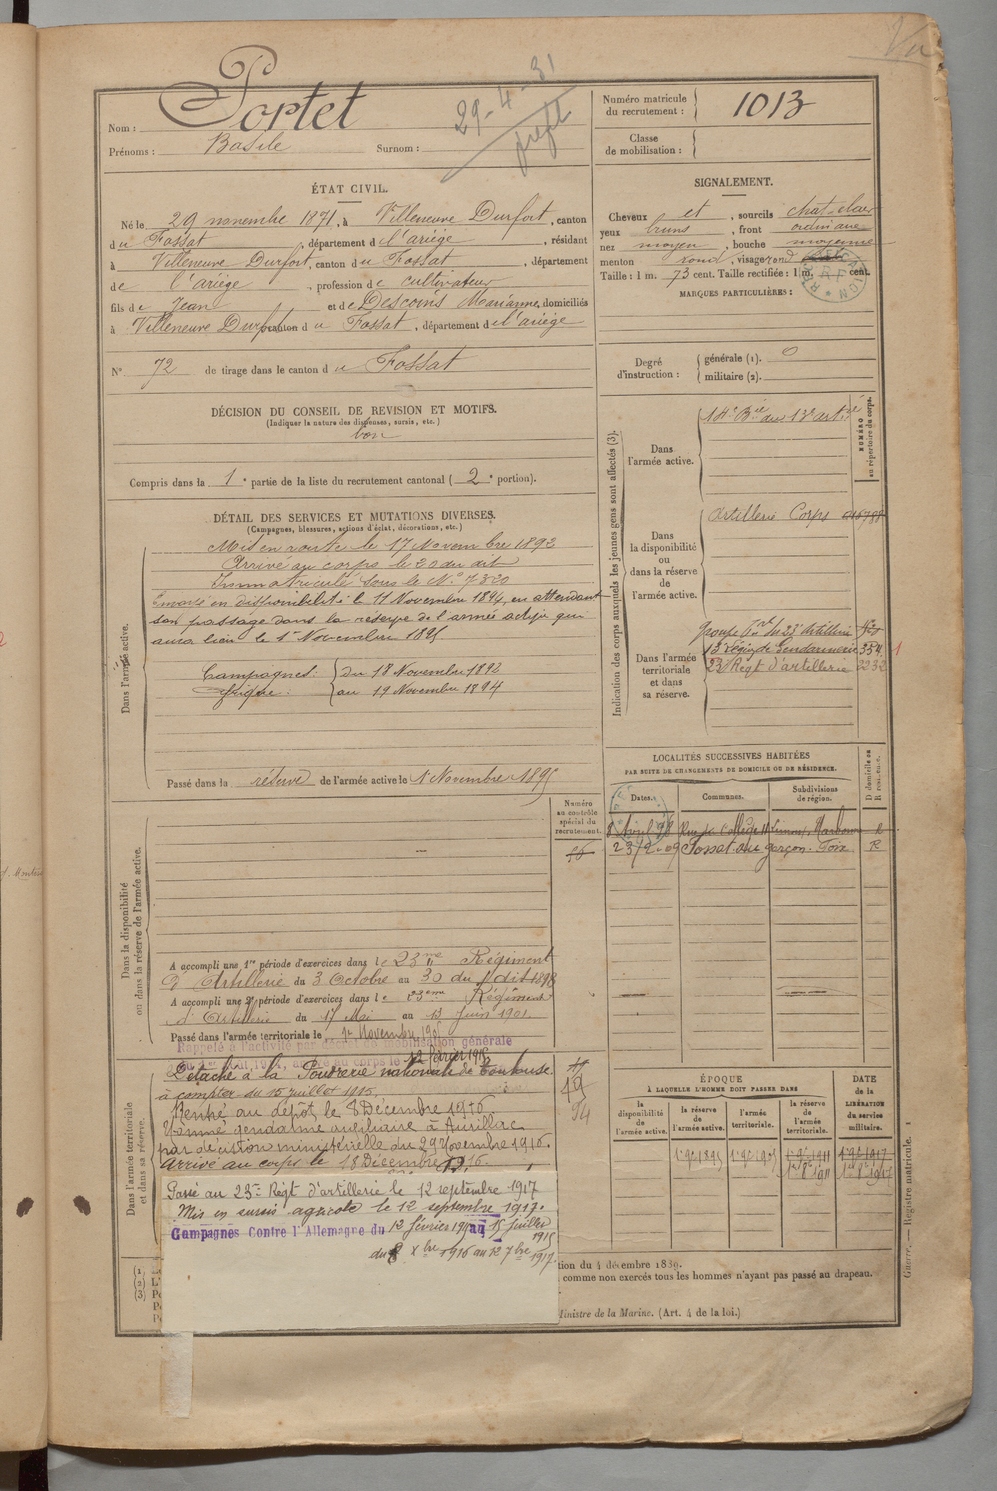 Vu
Nom : Portet
Prénoms : Basile Surnom :
29-4-31
Numéro matricule du recrutement : 1013
Classe de mobilisation :
ÉTAT CIVIL.
Né le 29 novembre 1871, à Villeneuve Durfort, canton
du Fossat, département de l'ariège, résidant
à Villeneuve Durfort, canton du Fossat, département
de l'ariège, profession de cultivateur
fils de Jean et de Descoins Marianne, domiciliés
à Villeneuve Durfort canton du Fossat, département de l'ariège
N° 72 de tirage dans le canton du Fossat
DÉCISION DU CONSEIL DE REVISION ET MOTIFS.
(Indiquer la nature des dispenses, sursis, etc.)
bon
Compris dans la 1e partie de la liste du recrutement cantonal (2e portion).
SIGNALEMENT.
Cheveux et, sourcils chat. clair
yeux bruns, front ordinaire
nez moyen, bouche moyenne
menton rond, visage rond
Taille : 1 m. 73 cent. Taille rectifiée : 1 m. cent.
MARQUES PARTICULIÈRES :
Degré d'instruction : générale (1). 0
militaire (2).
DÉTAIL DES SERVICES ET MUTATIONS DIVERSES.
(Campagnes, blessures, actions d'éclat, décorations, etc.)
Dans l'armée active.
Mis en route le 17 Novembre 1892
Arrivé au corps le 20 du dit
Immatriculé sous le N° 7320
Envoyé en disponibilité le 11 Novembre 1894, en attendant
son passage dans la réserve de l'armée active qui
aura lieu le 1er Novembre 1895
Campagnes : du 18 Novembre 1892
Afrique : au 19 Novembre 1894
Passé dans la réserve de l'armée active le 1er Novembre 1895
Indication des corps auxquels les jeunes gens sont affectés (3).
NUMÉRO au répertoire du corps.
Dans l'armée active.
14e Bie du 13e artie
Dans la disponibilité ou dans la réserve de l'armée active.
Artillerie Corps
Dans l'armée territoriale et dans sa réserve.
Groupe Trial du 23e Artillerie
15 Légion de Gendarmerie 354
23 Régt d'artillerie 2232
LOCALITÉS SUCCESSIVES HABITÉES
PAR SUITE DE CHANGEMENTS DE DOMICILE OU DE RÉSIDENCE.
Dates. Communes. Subdivisions de région. D domicile ou R résidence.
8 Avril 98 Rue du Collège 11 Limoux Narbonne R
23/2-09 Fossat au garçon. Foix R
Numéro au contrôle spécial du recrutement.
Dans la disponibilité ou dans la réserve de l'armée active.
A accompli une 1re période d'exercices dans le 23me Régiment
d'Artillerie du 3 Octobre au 30 du dit 1898
A accompli une 2e période d'exercices dans le 23eme Régiment
d'Artillerie du 17 Mai au 13 Juin 1901.
Passé dans l'armée territoriale le 1er Novembre 1905
Dans l'armée territoriale et dans sa réserve.
Rappelé à l'activité par décret de mobilisation générale
du 1er Août 1914, arrivé au corps le 12 février 1915
Détaché à la Poudrerie nationale de Toulouse
à compter du 15 juillet 1915.
Rentré au dépôt le 8 Décembre 1916
Nommé gendarme auxiliaire à Aurillac
par décision ministérielle du 29 Novembre 1916.
Arrivé au corps le 18 Décembre 1916.
Passé au 23me Régt d'artillerie le 12 septembre 1917
Mis en sursis agricole le 12 septembre 1917.
Campagnes Contre l'Allemagne du 12 février 1915 au 15 juillet 1915
du 8 Xbre 1916 au 12 7bre 1917.
ÉPOQUE
À LAQUELLE L'HOMME DOIT PASSER DANS
la disponibilité de l'armée active. la réserve de l'armée active. l'armée territoriale. la réserve de l'armée territoriale.
DATE de la LIBÉRATION du service militaire.
1er 9bre 1895 1er 9bre 1905 1er 9bre 1911 1er 9bre 1917
1er 8bre 1911 1er 8bre 1917
tion du 4 décembre 1889.
comme non exercés tous les hommes n'ayant pas passé au drapeau.
Ministre de la Marine. (Art. 4 de la loi.)
Guerre. — Registre matricule. 1